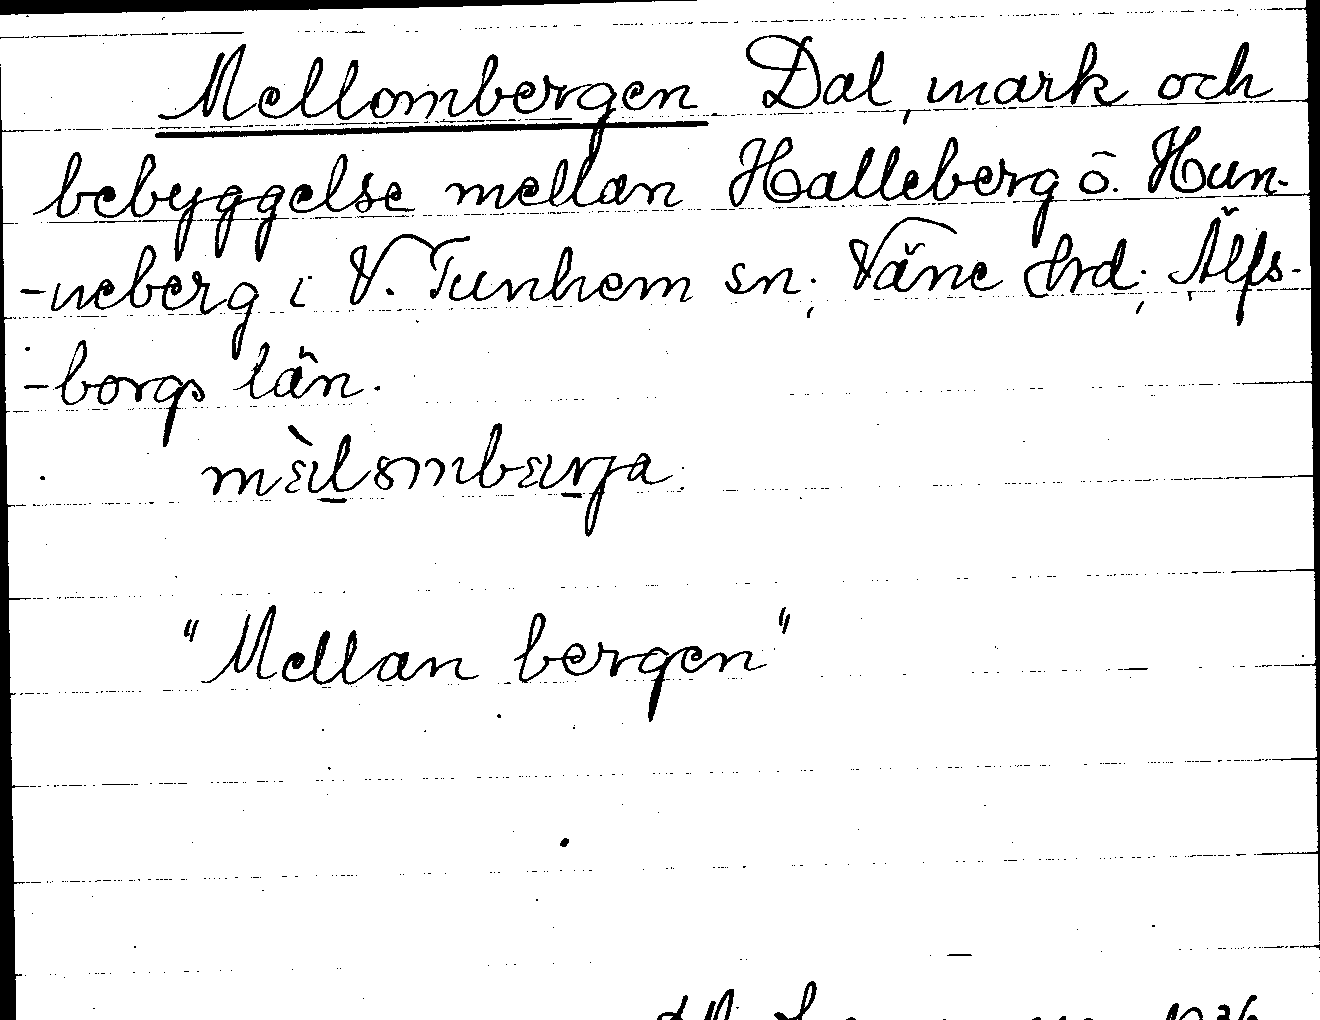 Mellombergen. Dal, mark och
bebyggelse mellan Halleberg o. Hun-
-neberg i V. Tunhem sn., Väne hrd., Älfs-
-borgs län.
"Mellan bergen"